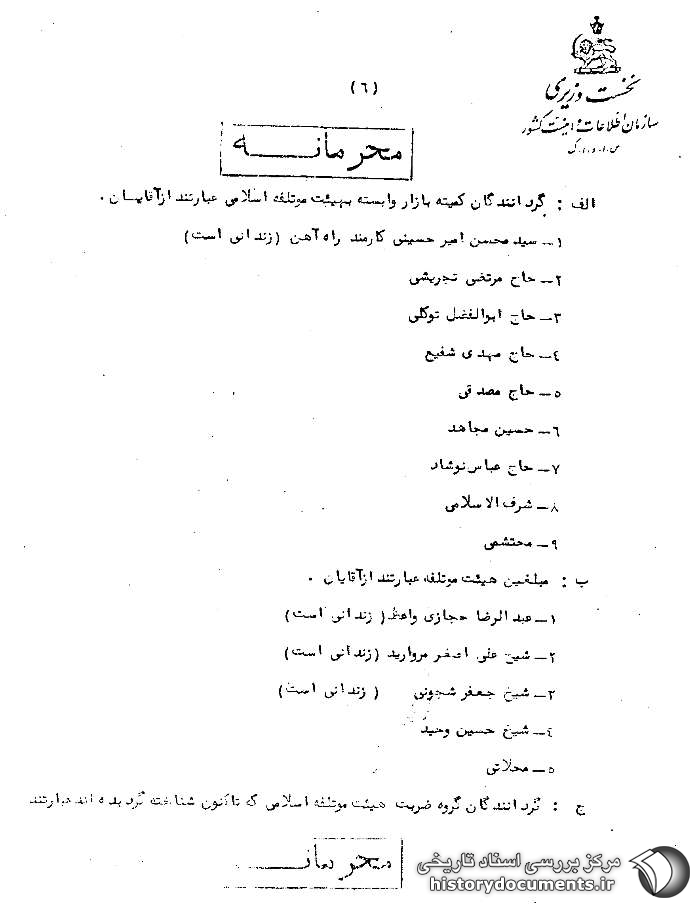 نخست وزیری
سازمان اطلاعات و امنیت کشور
س.ا.و.ا.ک
(٦)
محرمانه
الف : گردانندگان کمیته بازار وابسته بهیئت موتلفه اسلامی عبارتند ازآقایان .
۱ــ سید محسن امیر حسینی کارمند راه آهن (زندانی است)
۲ــ حاج مرتضی تجریشی
۳ــ حاج ابوالفضل توکلی
٤ــ حاج مهدی شفیع
٥ــ حاج مصدقی
٦ــ حسین مجاهد
۷ــ حاج عباس نوشاد
۸ــ شرف الاسلامی
۹ــ محتشمی
ب : مبلغین هیئت موتلفه عبارتند ازآقایان .
۱ــ عبدالرضا حجازی واعظ (زندانی است)
۲ــ شیخ علی اصغر مروارید (زندانی است)
۳ــ شیخ جعفر شجونی (زندانی است)
٤ــ شیخ حسین وحید
٥ــ محلاتی
ج : گردانندگان گروه ضربت هیئت موتلفه اسلامی که تاکنون شناخته گردیده اند عبارتند
محرمانه
مرکز بررسی اسناد تاریخی
historydocuments.ir